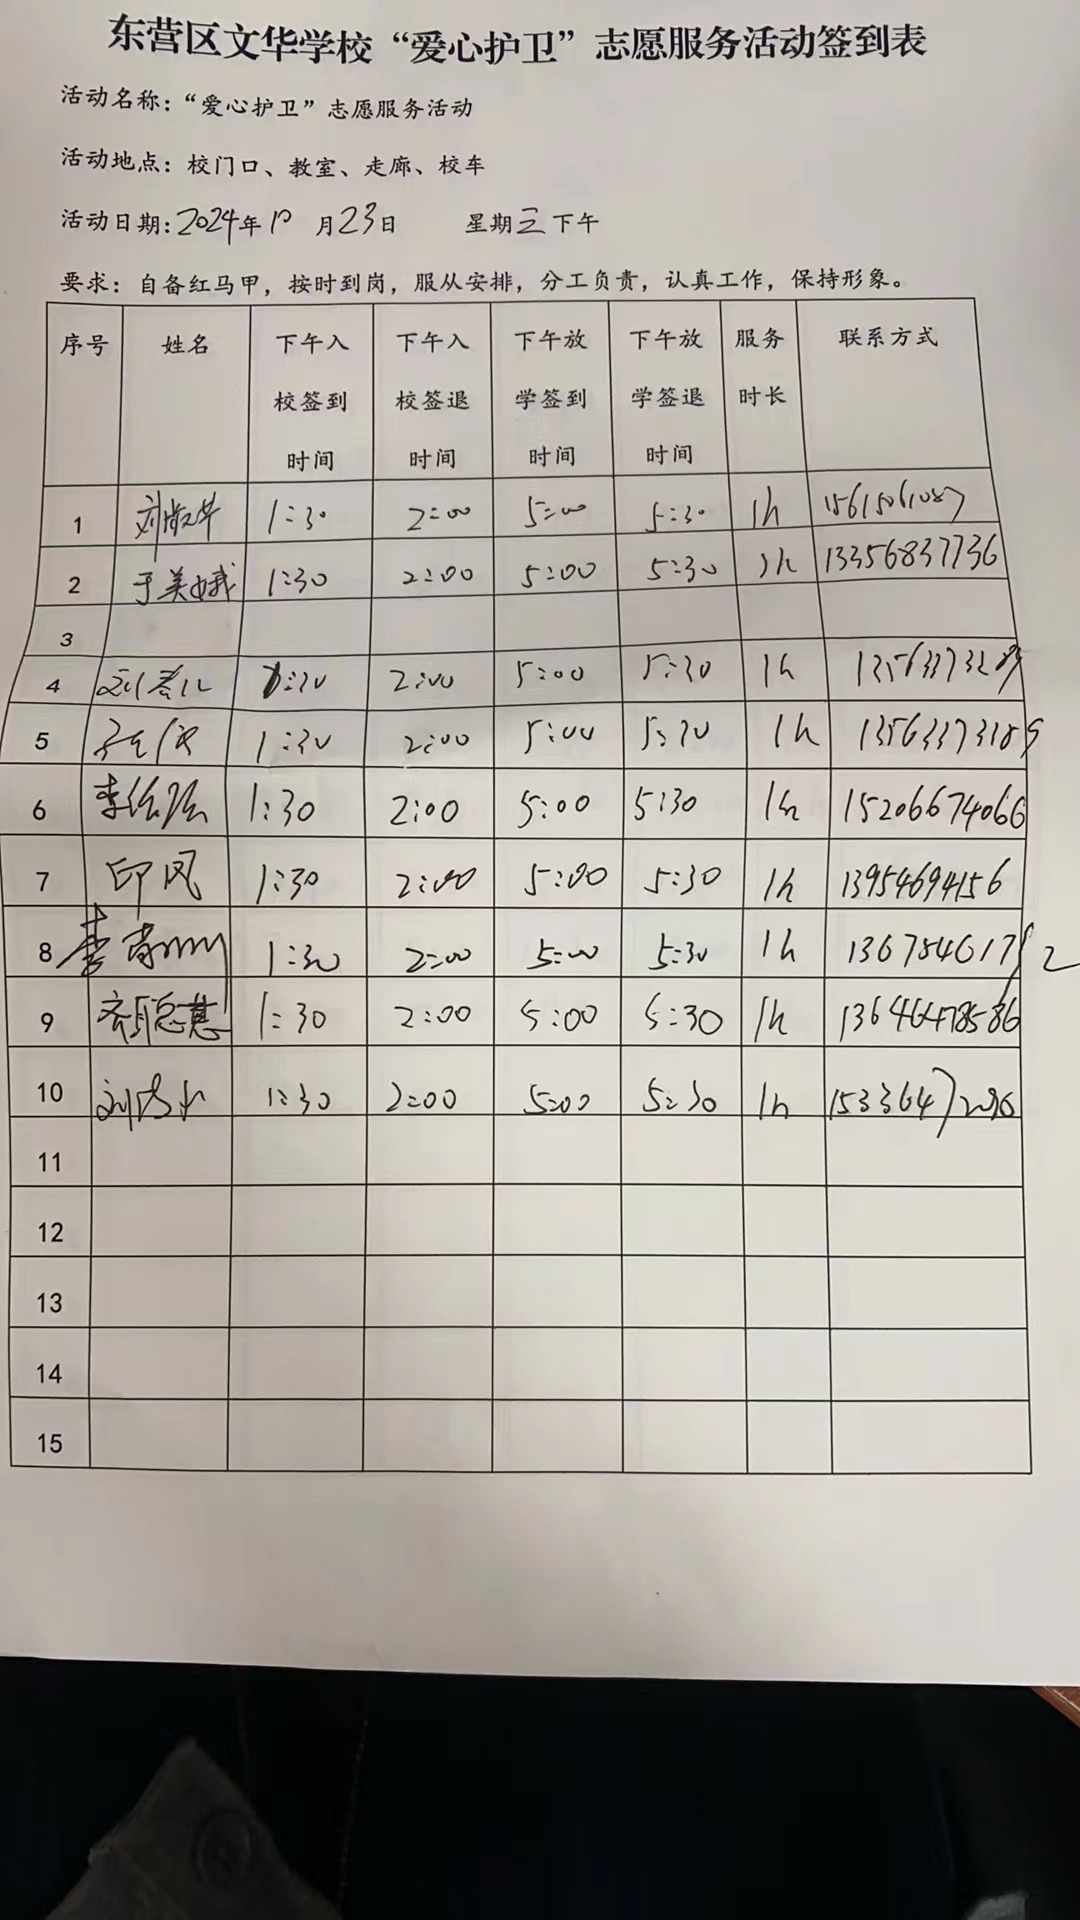 东营区文华学校“爱心护卫”志愿服务活动签到表
活动名称：“爱心护卫”志愿服务活动
活动地点：校门口、教室、走廊、校车
活动日期：2024年10月23日 星期三下午
要求：自备红马甲，按时到岗，服从安排，分工负责，认真工作，保持形象。
序号 姓名 下午入校签到时间 下午入校签退时间 下午放学签到时间 下午放学签退时间 服务时长 联系方式
1 刘淑华 1:30 2:00 5:00 5:30 1h 15615061087
2 于美娥 1:30 2:00 5:00 5:30 1h 13356837736
3
4 1:30 2:00 5:00 5:30 1h
5 1:30 2:00 5:00 5:30 1h 13563373189
6 1:30 2:00 5:00 5:30 1h 15206674066
7 印凤 1:30 2:00 5:00 5:30 1h 13954694156
8 1:30 2:00 5:00 5:30 1h
9 齐聪慧 1:30 2:00 5:00 5:30 1h 13646478586
10 1:30 2:00 5:00 5:30 1h 15336472096
11
12
13
14
15